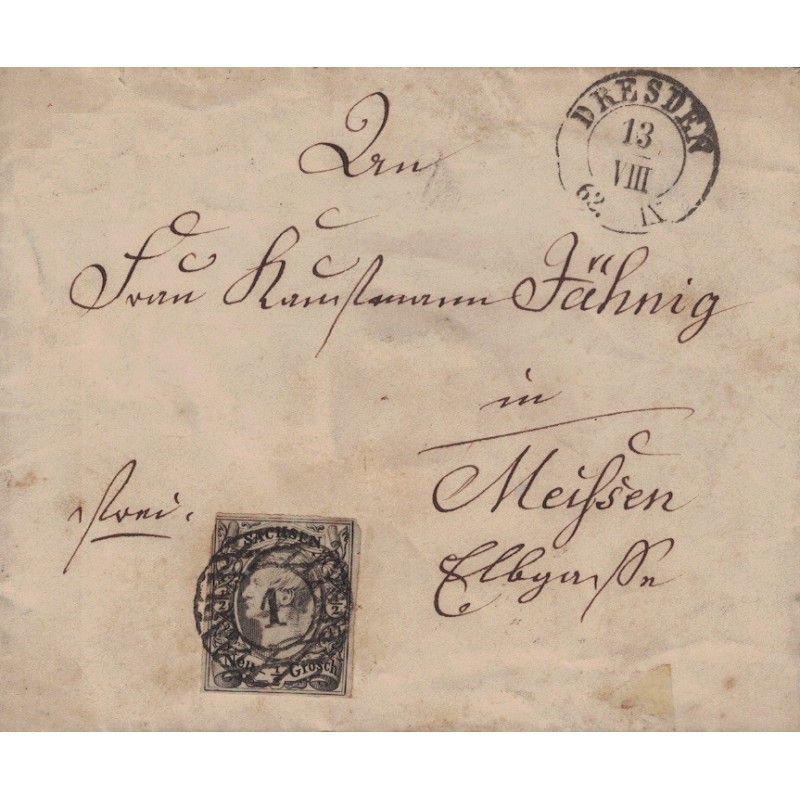 DRESDEN
13
VIII
62. IX
An
Frau Kaufmann Jähnig
in
Meißen
Elbgasse
frei.
SACHSEN
1
1/2 1/2
Neu- 1/2 Grosch